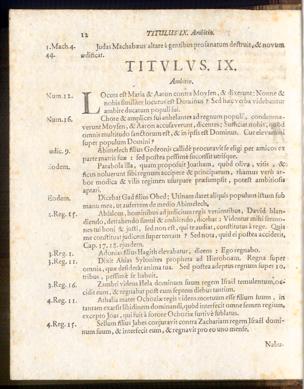 12 TITULUS IX. Ambitio.
1. Mach. 4. Judas Machabæus altare à gentibus profanatum destruit, & novum
44. ædificat.
TITULVS. IX.
Ambitio.
Num. 12. LOcuta est Maria & Aaron contra Moysen, & dixerunt: Nonne &
nobis similiter locutus est Dominus? Sed hæc verba videbantur
ambire ducatum populi sui.
Num. 16. Chore & complices sui anhelantes ad regnum populi, condemna-
verunt Moysen, & Aaron accusaverunt, dicentes; Sufficiat vobis, quod
omnis multitudo sanctorum est, & in ipsis est Dominus. Cur elevamini
super populum Domini?
Judic. 9. Abimelech filius Gedeonis callidè procuravit se eligi per amicos ex
parte matris suæ: sed postea pessimè
Eodem. Parabola illa, quam proposuit Joatham, quòd oliva, vitis, &
ficus noluerunt sibi regnum accipere & principatum, rhamnus verò ar-
bor modica & vilis regimen usurpare præsumpsit, potest ambitiosis
aptari.
Eodem. Dicebat Gaal filius Obed; Utinam daret aliquis populum istum sub
manu mea, ut auferrem de medio Abimelech.
2. Reg. 15. Absalom, hominibus ad judicium regis venientibus, David blan-
diendo, detrahendo simul & ambiendo, dicebat: Videntur mihi sermo-
nes tui boni & justi, sed non est, qui te audiat, constitutus à rege. Quis
me constituat judicem super terram? Sed nota, quid ei postea acciderit,
Cap. 17. 18. ejusdem.
3. Reg. 1. Adonias filius Hagith elevabatur, dicens: Ego regnabo.
3. Reg. 11. Dixit Ahias Sylonites propheta ad Hieroboam, Regna super
omnia, quæ desiderat anima tua. Sed postea adeptus regnum super 10.
tribus, pessimè se habuit.
3. Reg. 16. Zambri videns Hela dominum suum regem Israël temulentum, oc-
cidit eum, & regnabat post eum septem diebus tantùm.
4. Reg. 11. Athalia mater Ochoziæ regis videns mortuum esse filium suum, in
tantum exarsit libidinem dominandi, quòd interfecit omne semen regium,
excepto Joas, qui fuit à sorore Ochoziæ furtivè sublatus.
4. Reg. 15. Sellum filius Jabes conjuravit contra Zachariam regem Israël domi-
num suum, & interfecit eum, & regnavit pro eo uno mense.
Nabu-